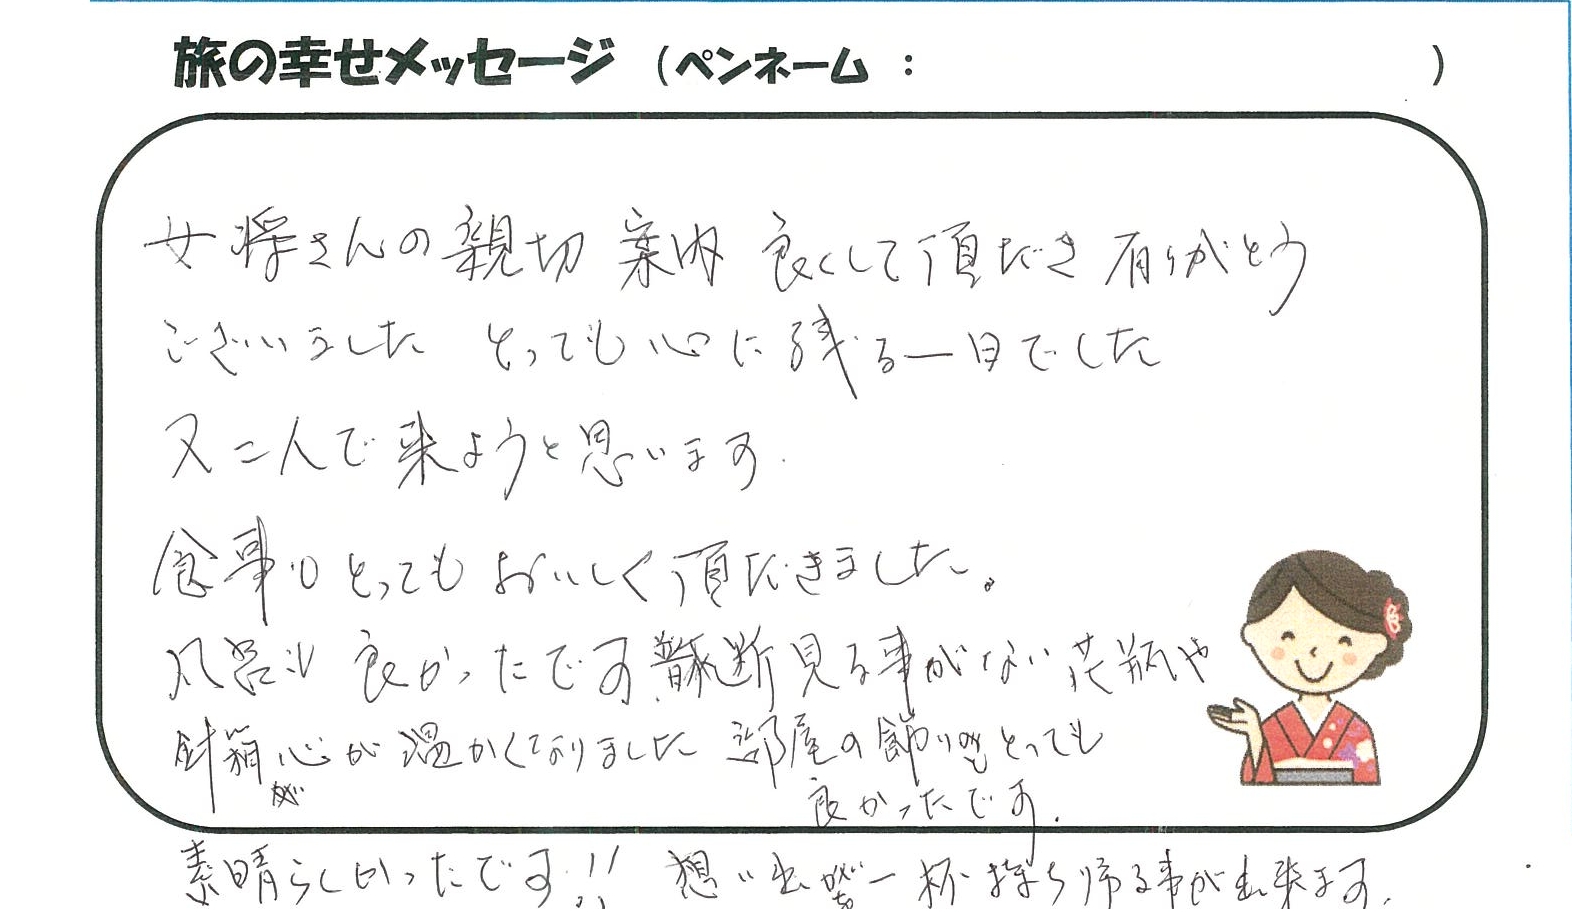 旅の幸せメッセージ (ペンネーム : )
女将さんの親切 案内 良くして頂だき 有りがとう
ございました とっても心に残る一日でした
又二人で来ようと思います.
食事も とっても おいしく頂だきました。
風呂も 良かったです 普断見る事がない 花瓶や
針箱 心が温かくなりました 部屋の飾りもとっても
が
良かったです.
素晴らしかったです!! 想い出が一杯 持ち帰る事が出来ます.
を